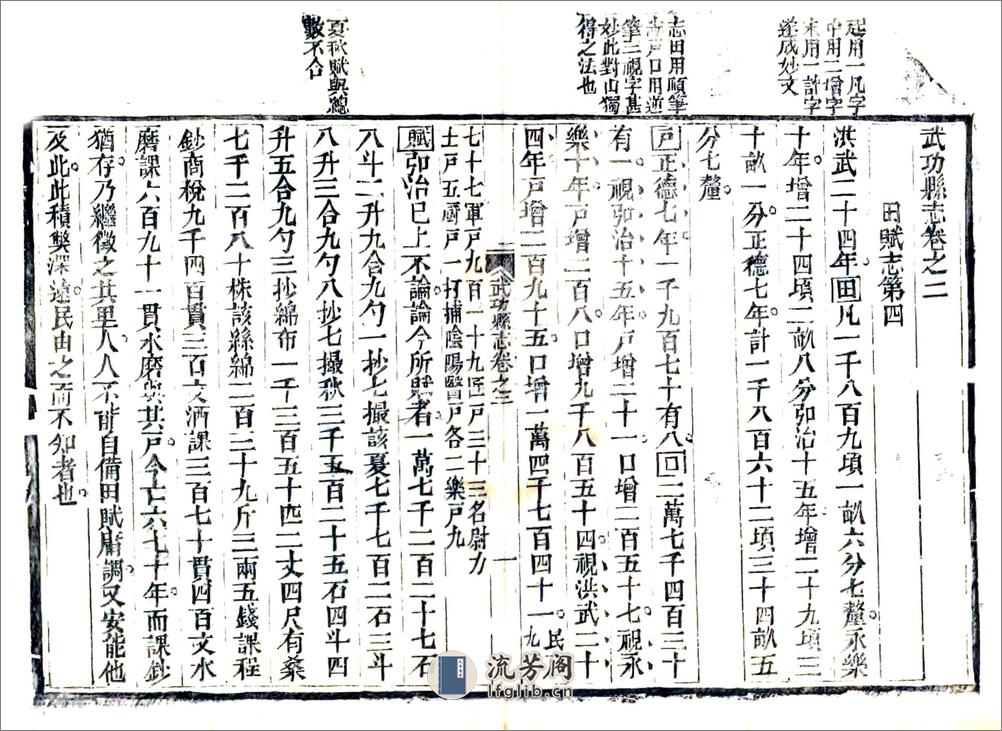 起用一凡字
中用二增字
末用一計字
遂成妙文
志田用順筆
志戶口用逆
筆三視字甚
妙此對山獨
得之法也
夏秋賦與總
數不合
武功縣志卷之二
田賦志第四
洪武二十四年田凡一千八百九頃一畝六分七釐永樂
十年增二十四頃二畝八分弘治十五年增二十九頃三
十畝一分正德七年計一千八百六十二頃三十四畝五
分七釐
戶正德七年一千九百七十有八口二萬七千四百三十
有一視弘治十五年戶增二十一口增二百五十七視永
樂十年戶增二百八口增九千八百五十四視洪武二十
四年戶增二百九十五口增一萬四千七百四十一民九
武功縣志卷之二
一
七十七軍戶九百一十九匠戶三十三名尉力
士戶五厨戶一打捕陰陽醫戶各二樂戶九
賦弘治已上不論論今所賦者一萬七千二百二十七石
八斗二升九合九勺一抄七撮該夏七千七百二石三斗
八升三合九勺八抄七撮秋三千五百二十五石四斗四
升五合九勺三抄綿布一千三百五十匹二丈四尺有蘂
七千二百八十株該絲綿二百三十九斤三兩五錢課程
鈔商稅九千四百貫三百文酒課三百七十貫四百文水
磨課六百九十一貫水磨與其戶今亡六七十年而課鈔
猶存乃繼徵之其里人人不能自備田賦庸調又安能他
及此此積獘深遠民由之而不知者也
流芳阁
lfglib.cn